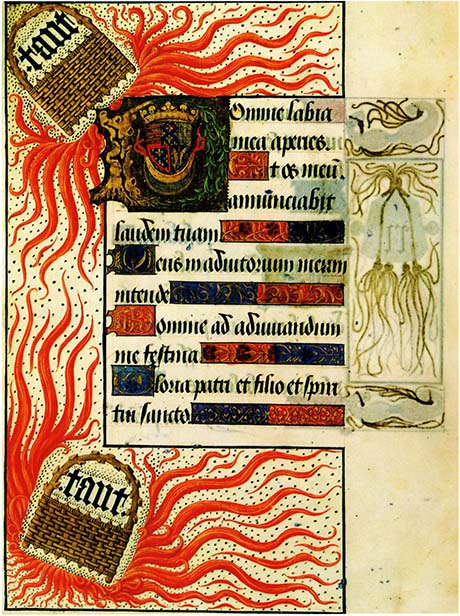 tant
Domine labia
mea aperies.
Et os meū.
annunciabit
laudem tuam
Deus in adiutorium meum
intende
Domine ad adiuuandum
me festina
Gloria patri et filio et spiri
tui sancto
tant.